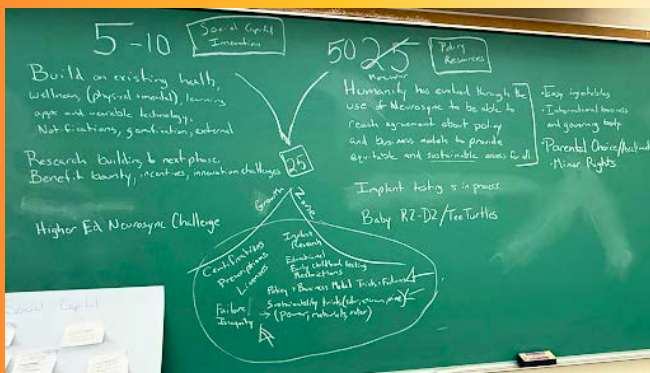 5-10
Social Capital
Innovation
50 25
Policy
Resources
Build on existing health,
wellness, (physical + mental), learning
apps and wearable technology.
Notifications, gamification, external
Research building to next phase.
Benefit bounty, incentives, innovation challenges
Higher Ed Neurosync Challenge
25
Growth Zone
Humanity has evolved through the
use of Neurosync to be able to
reach agreement about policy
and business models to provide
equitable and sustainable access for all.
Implant testing is in process
Baby R2-D2/TeeTurtles
• Easy injectables
• International business
and governing body
• Parental Choice/
• Minor Rights
Certifications
Prescriptions
Licenses
Failure,
Inequity
Implant
Research
Educational
Early childhood testing
Restrictions
Policy + Business Model Trials + Failures
Sustainability trials
→ (Power, materials,
Social Capital